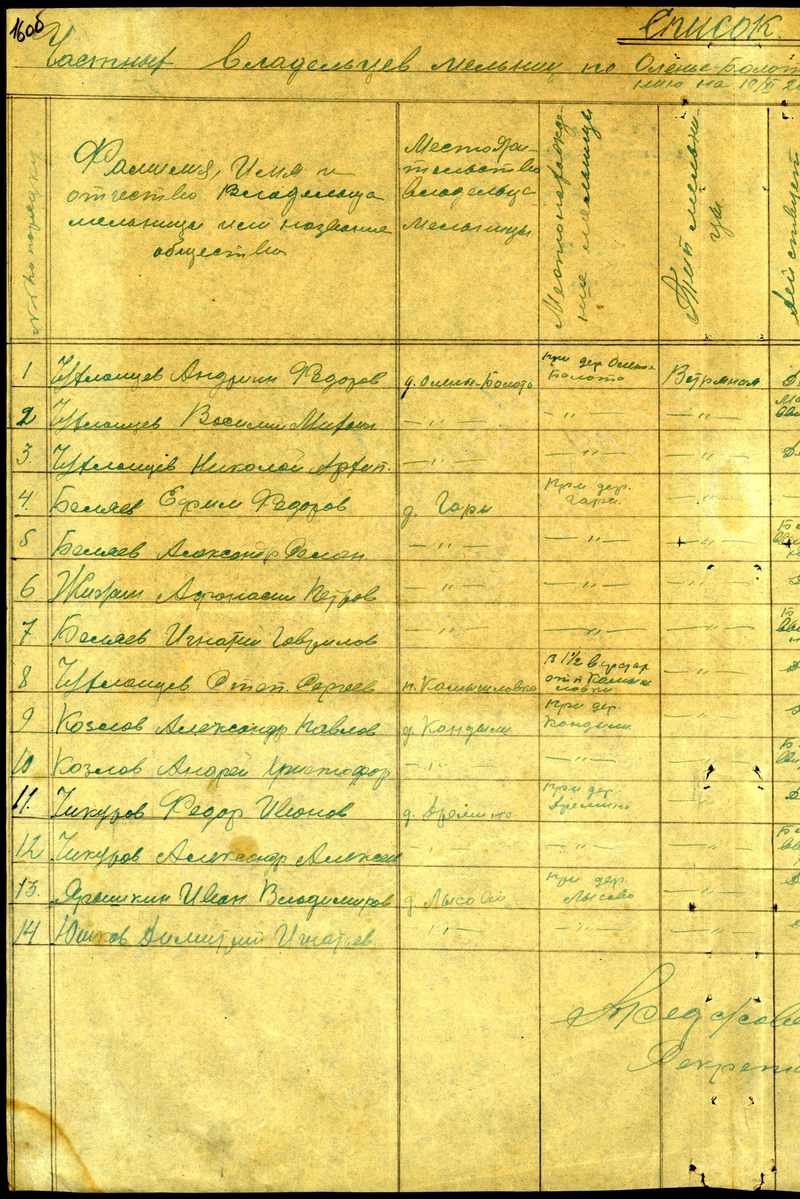 160об
Список
Частных владельцев мельниц по Оленье-Болот
нию на 10/
№№ по порядку
Фамилия, Имя и
отчество владельца
мельницы или название
общества
Местожи-
тельство
владельца
мельницы
Местонахожде-
ние мельницы
Тип мельни-
цы
Действует
1 Андриян Федоров д. Олень-Болото при дер. Олень- Болото Ветряная
2 Василий Миron — " — — " — — " —
3. Николай Архип. — " — — " — — " —
4. Беляев Ефим Федоров д. Гари при дер. Гари — " —
5 Беляев Александр Роман — " — — " — — " —
6 Жижин Афонасий Петров — " — — " — — " —
7 Беляев Игнатий Гаврилов — " — — " — — " —
8 Степ. Сергеев п. Камышловка в 1½ верстах от п. Камыш ловки — " —
9 Козлов Александр Павлов д. Кандыли при дер. Кандыли — " —
10 Козлов Андрей Христофор — " — — " — — " —
11. Чикуров Федор Иванов д. Еремино при дер. Еремино — " —
12 Чикуров Александр Алексеев — " — — " — — " —
13. Ярашкин Иван Владимиров д. Лысово при дер. Лысово — " —
14 Юшков Димитрий Игнатьев — " — — " — — " —
Пред
Секрета